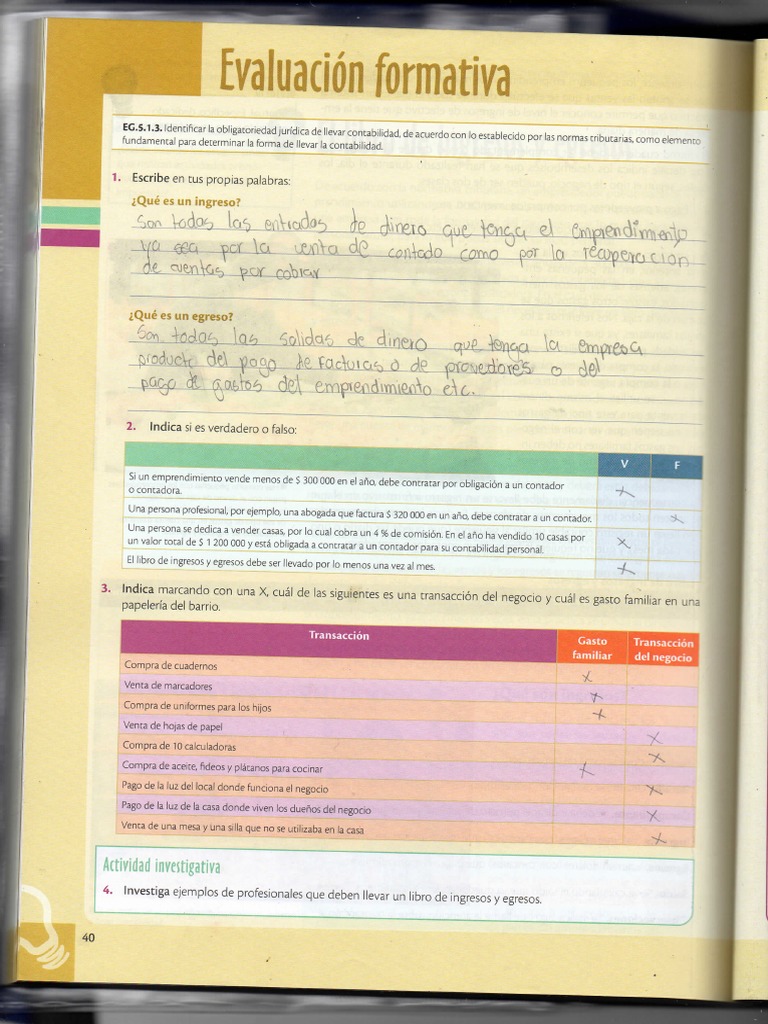 Evaluación formativa
EG.5.1.3. Identificar la obligatoriedad jurídica de llevar contabilidad, de acuerdo con lo establecido por las normas tributarias, como elemento
fundamental para determinar la forma de llevar la contabilidad.
1. Escribe en tus propias palabras:
¿Qué es un ingreso?
Son todas las entradas de dinero que tenga el emprendimiento
ya sea por la venta de contado como por la recuperacion
de cuentas por cobrar
¿Qué es un egreso?
Son todas las salidas de dinero que tenga la empresa
producto del pago de facturas o de provedores o del
pago de gastos del emprendimiento etc.
2. Indica si es verdadero o falso:
V F
Si un emprendimiento vende menos de $ 300 000 en el año, debe contratar por obligación a un contador
o contadora. X
Una persona profesional, por ejemplo, una abogada que factura $ 320 000 en un año, debe contratar a un contador. X
Una persona se dedica a vender casas, por lo cual cobra un 4 % de comisión. En el año ha vendido 10 casas por
un valor total de $ 1 200 000 y está obligada a contratar a un contador para su contabilidad personal. X
El libro de ingresos y egresos debe ser llevado por lo menos una vez al mes. X
3. Indica marcando con una X, cuál de las siguientes es una transacción del negocio y cuál es gasto familiar en una
papelería del barrio.
Transacción Gasto familiar Transacción del negocio
Compra de cuadernos X
Venta de marcadores X
Compra de uniformes para los hijos X
Venta de hojas de papel X
Compra de 10 calculadoras X
Compra de aceite, fideos y plátanos para cocinar X
Pago de la luz del local donde funciona el negocio X
Pago de la luz de la casa donde viven los dueños del negocio X
Venta de una mesa y una silla que no se utilizaba en la casa X
Actividad investigativa
4. Investiga ejemplos de profesionales que deben llevar un libro de ingresos y egresos.
40